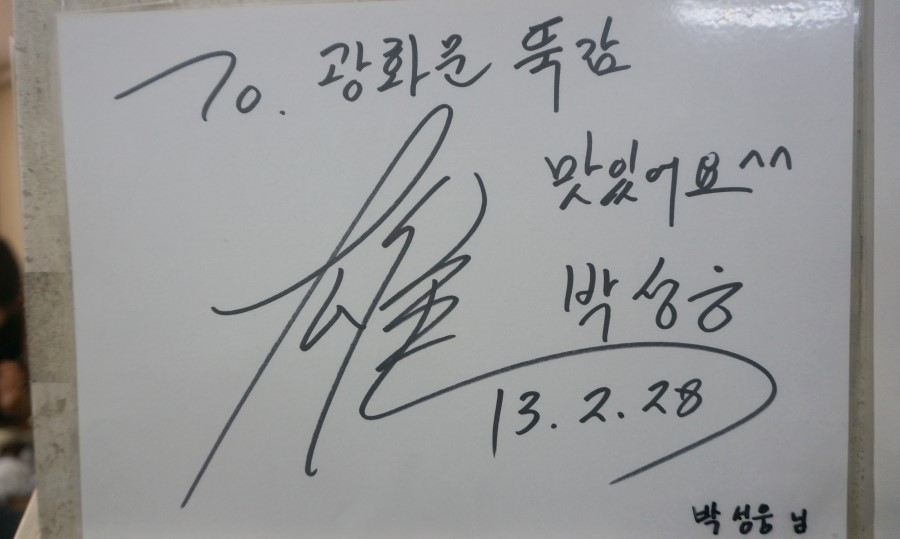 To. 광화문 뚝감
맛있어요^^
박성웅
13.2.28
박성웅 님